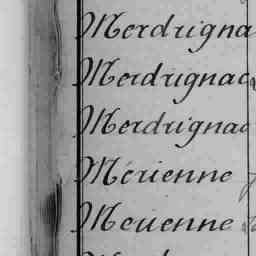 Merdrigna
Merdrignac
Merdrignac
Mérienne
Meuenne